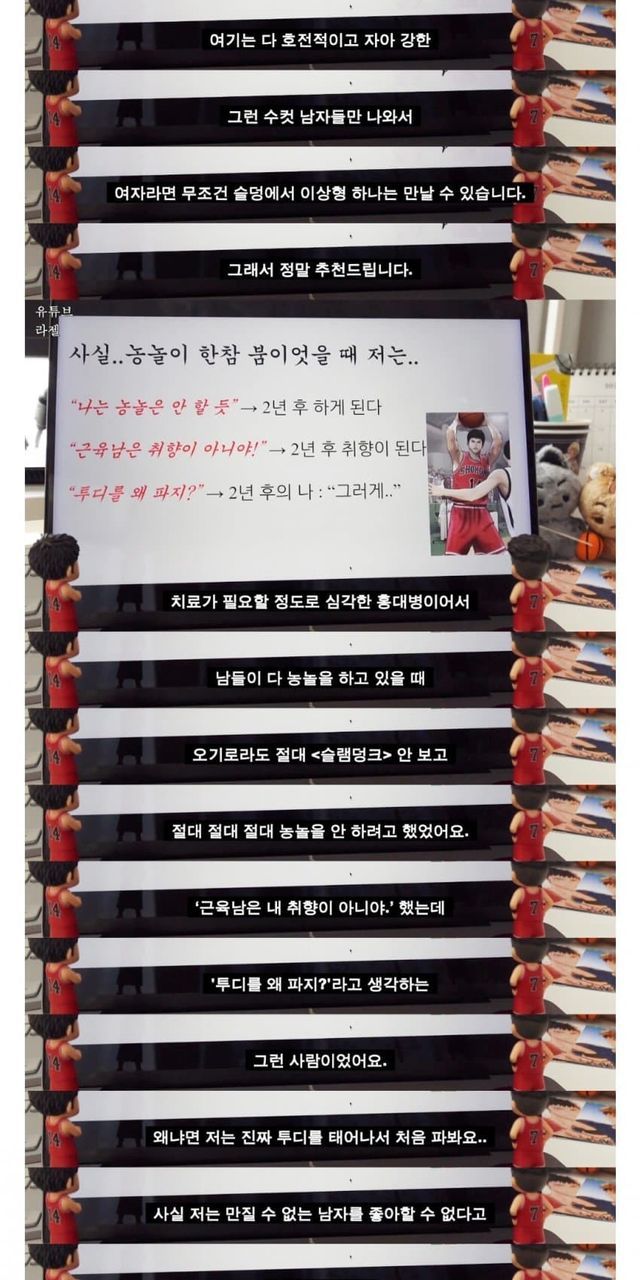 여기는 다 호전적이고 자아 강한
그런 수컷 남자들만 나와서
여자라면 무조건 슬덩에서 이상형 하나는 만날 수 있습니다.
그래서 정말 추천드립니다.
유튜브
라젤
사실..농놀이 한참 붐이엇을 때 저는..
“나는 농놀은 안 할 듯” → 2년 후 하게 된다
“근육남은 취향이 아니야!” → 2년 후 취향이 된다
“투디를 왜 파지?” → 2년 후의 나 : “그러게..”
치료가 필요할 정도로 심각한 홍대병이어서
남들이 다 농놀을 하고 있을 때
오기로라도 절대 <슬램덩크> 안 보고
절대 절대 절대 농놀을 안 하려고 했었어요.
‘근육남은 내 취향이 아니야.’ 했는데
'투디를 왜 파지?'라고 생각하는
그런 사람이었어요.
왜냐면 저는 진짜 투디를 태어나서 처음 파봐요..
사실 저는 만질 수 없는 남자를 좋아할 수 없다고